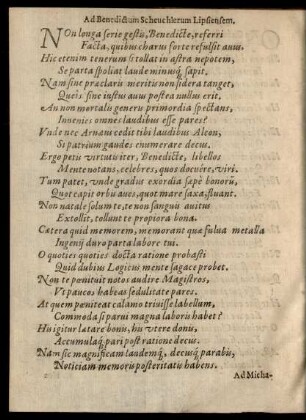 Ad Benedictum Scheuchlerum Lipsiensem.
NOn longa serie gestû, Benedicte, referri
Facta, quibus charus forte refulsit auus.
Hic etenim tenerum si tollat in astra nepotem,
Se parta spoliat laude minusq́; sapit,
Nam sine præclaris meritis non sidera tanget,
Queis sine iustus auus postea nullus erit.
An non mortalis generis primordia spectans,
Inuenies omnes laudibus esse pares?
Vnde nec Arnam cedit tibi laudibus Alcon,
Si patrium gaudes enumerare decus.
Ergo petis virtutis iter, Benedicte, libellos
Mente notans, celebres, quos docuere, viri.
Tum patet, vnde gradus exordia sæpè bonorũ,
Quot capit orbis aues, quot mare saxa, fluant.
Non natale solum te, te non sanguis auitus
Extollit, tollunt te propiora bona.
Cætera quid memorem, memorant quæ fulua metalla
Ingenij duro parta labore tui.
O quoties quoties docta ratione probasti
Quid dubius Logicus mente sagace probet.
Non te pœnituit notos audire Magistros,
Vt paucos habeas sedulitate pares.
At quem pœniteat calamo triuisse labellum,
Commoda si parui magna laboris habet?
His igitur lætare bonis, his vtere donis,
Accumulaq́; pari post ratione decus.
Nam sic magnificam laudemq́;, decusq́; parabis,
Notitiam memoris posteritatis habens.
Ad Micha-